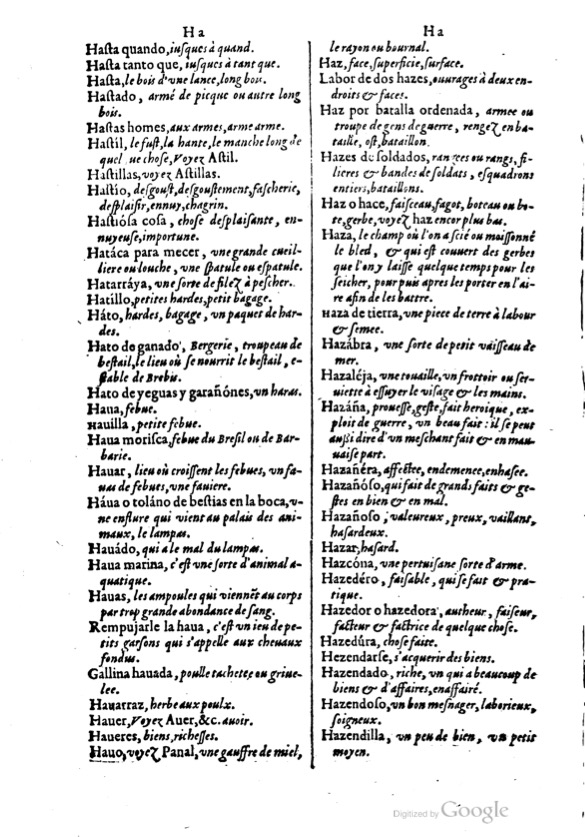 Ha
Hasta quando, iusques à quand.
Hasta tanto que, iusques à tant que.
Hasta, le bois d'vne lance, long bois.
Hastado, armé de picque ou autre long
bois.
Hastas homes, aux armes, arme arme.
Hastíl, le fust, la hante, le manche long de
quelque chose, Voyez Astil.
Hastillas, voyez Astillas.
Hastío, desgoust, desgoustement, fascherie,
desplaisir, ennuy, chagrin.
Hastiósa cosa, chose desplaisante, en-
nuyeuse, importune.
Hatáca para mecer, vne grande cueil-
liere ou louche, vne spatule ou espatule.
Hatarráya, vne sorte de filez à pescher.
Hatillo, petites hardes, petit bagage.
Háto, hardes, bagage, vn paquet de har-
des.
Hato de ganado, Bergerie, troupeau de
bestail, le lieu où se nourrit le bestail, e-
stable de Brebis.
Hato de yeguas y garañónes, vn haras.
Haua, febue.
Hauilla, petite febue.
Haua morisca, febue du Bresil ou de Bar-
barie.
Hauar, lieu où croissent les febues, vn fa-
uas de febues, vne fauiere.
Háua o toláno de bestias en la boca, v-
ne enflure qui vient au palais des ani-
maux, le lampas.
Hauádo, qui a le mal du lampas.
Haua marina, c'est vne sorte d'animal a-
quatique.
Hauas, les ampoules qui viennẽt au corps
par trop grande abondance de sang.
Rempujarle la haua, c'est vn ieu de pe-
tits garsons qui s'appelle aux cheuaux
fondus.
Gallina hauada, poulle tachetee ou griue-
lee.
Hauarraz, herbe aux poulx.
Hauer, Voyez Auer, &c. auoir.
Haueres, biens, richesses.
Hauo, voyez Panal, vne gauffre de miel,
Ha
le rayon ou bournal.
Haz, face, superficie, surface.
Labor de dos hazes, ouurages à deux en-
droits & faces.
Haz por batalla ordenada, armee ou
troupe de gens de guerre, rengez en ba-
taille, ost, bataillon.
Hazes de soldados, rangees ou rangs, fi-
lieres & bandes de soldats, esquadrons
entiers, bataillons.
Haz o hace, faisceau, fagot, boteau ou bo-
te, gerbe, voyez haz encor plus bas.
Haza, le champ où l'on a scié ou moissonné
le bled, & qui est couuert des gerbes
que l'on y laisse quelque temps pour les
seicher, pour puis apres les porter en l'ai-
re afin de les battre.
Haza de tierra, vne piece de terre à labour
& semee.
Hazábra, vne sorte de petit vaisseau de
mer.
Hazaléja, vne touaille, vn frottoir ou ser-
uiette à essuyer le visage & les mains.
Hazáña, prouesse, geste, fait heroique, ex-
ploit de guerre, vn beau fait: il se peut
aussi dire d'vn meschant fait & en mau-
uaise part.
Hazañéra, affectee, endemence, enhasee.
Hazañóso, qui fait de grands faits & ge-
stes en bien & en mal.
Hazañoso, valeureux, preux, vaillant,
hasardeux.
Hazar, hasard.
Hazcóna, vne pertuisane sorte d'arme.
Hazedéro, faisable, qui se fait & pra-
tique.
Hazedor o hazedora, autheur, faiseur,
facteur & factrice de quelque chose.
Hazedûra, chose faite.
Hezendarse, s'acquerir des biens.
Hazendado, riche, vn qui a beaucoup de
biens & d'affaires, enaffairé.
Hazendoso, vn bon mesnager, laborieux,
soigneux.
Hazendilla, vn peu de bien, vn petit
moyen.
Digitized by Google